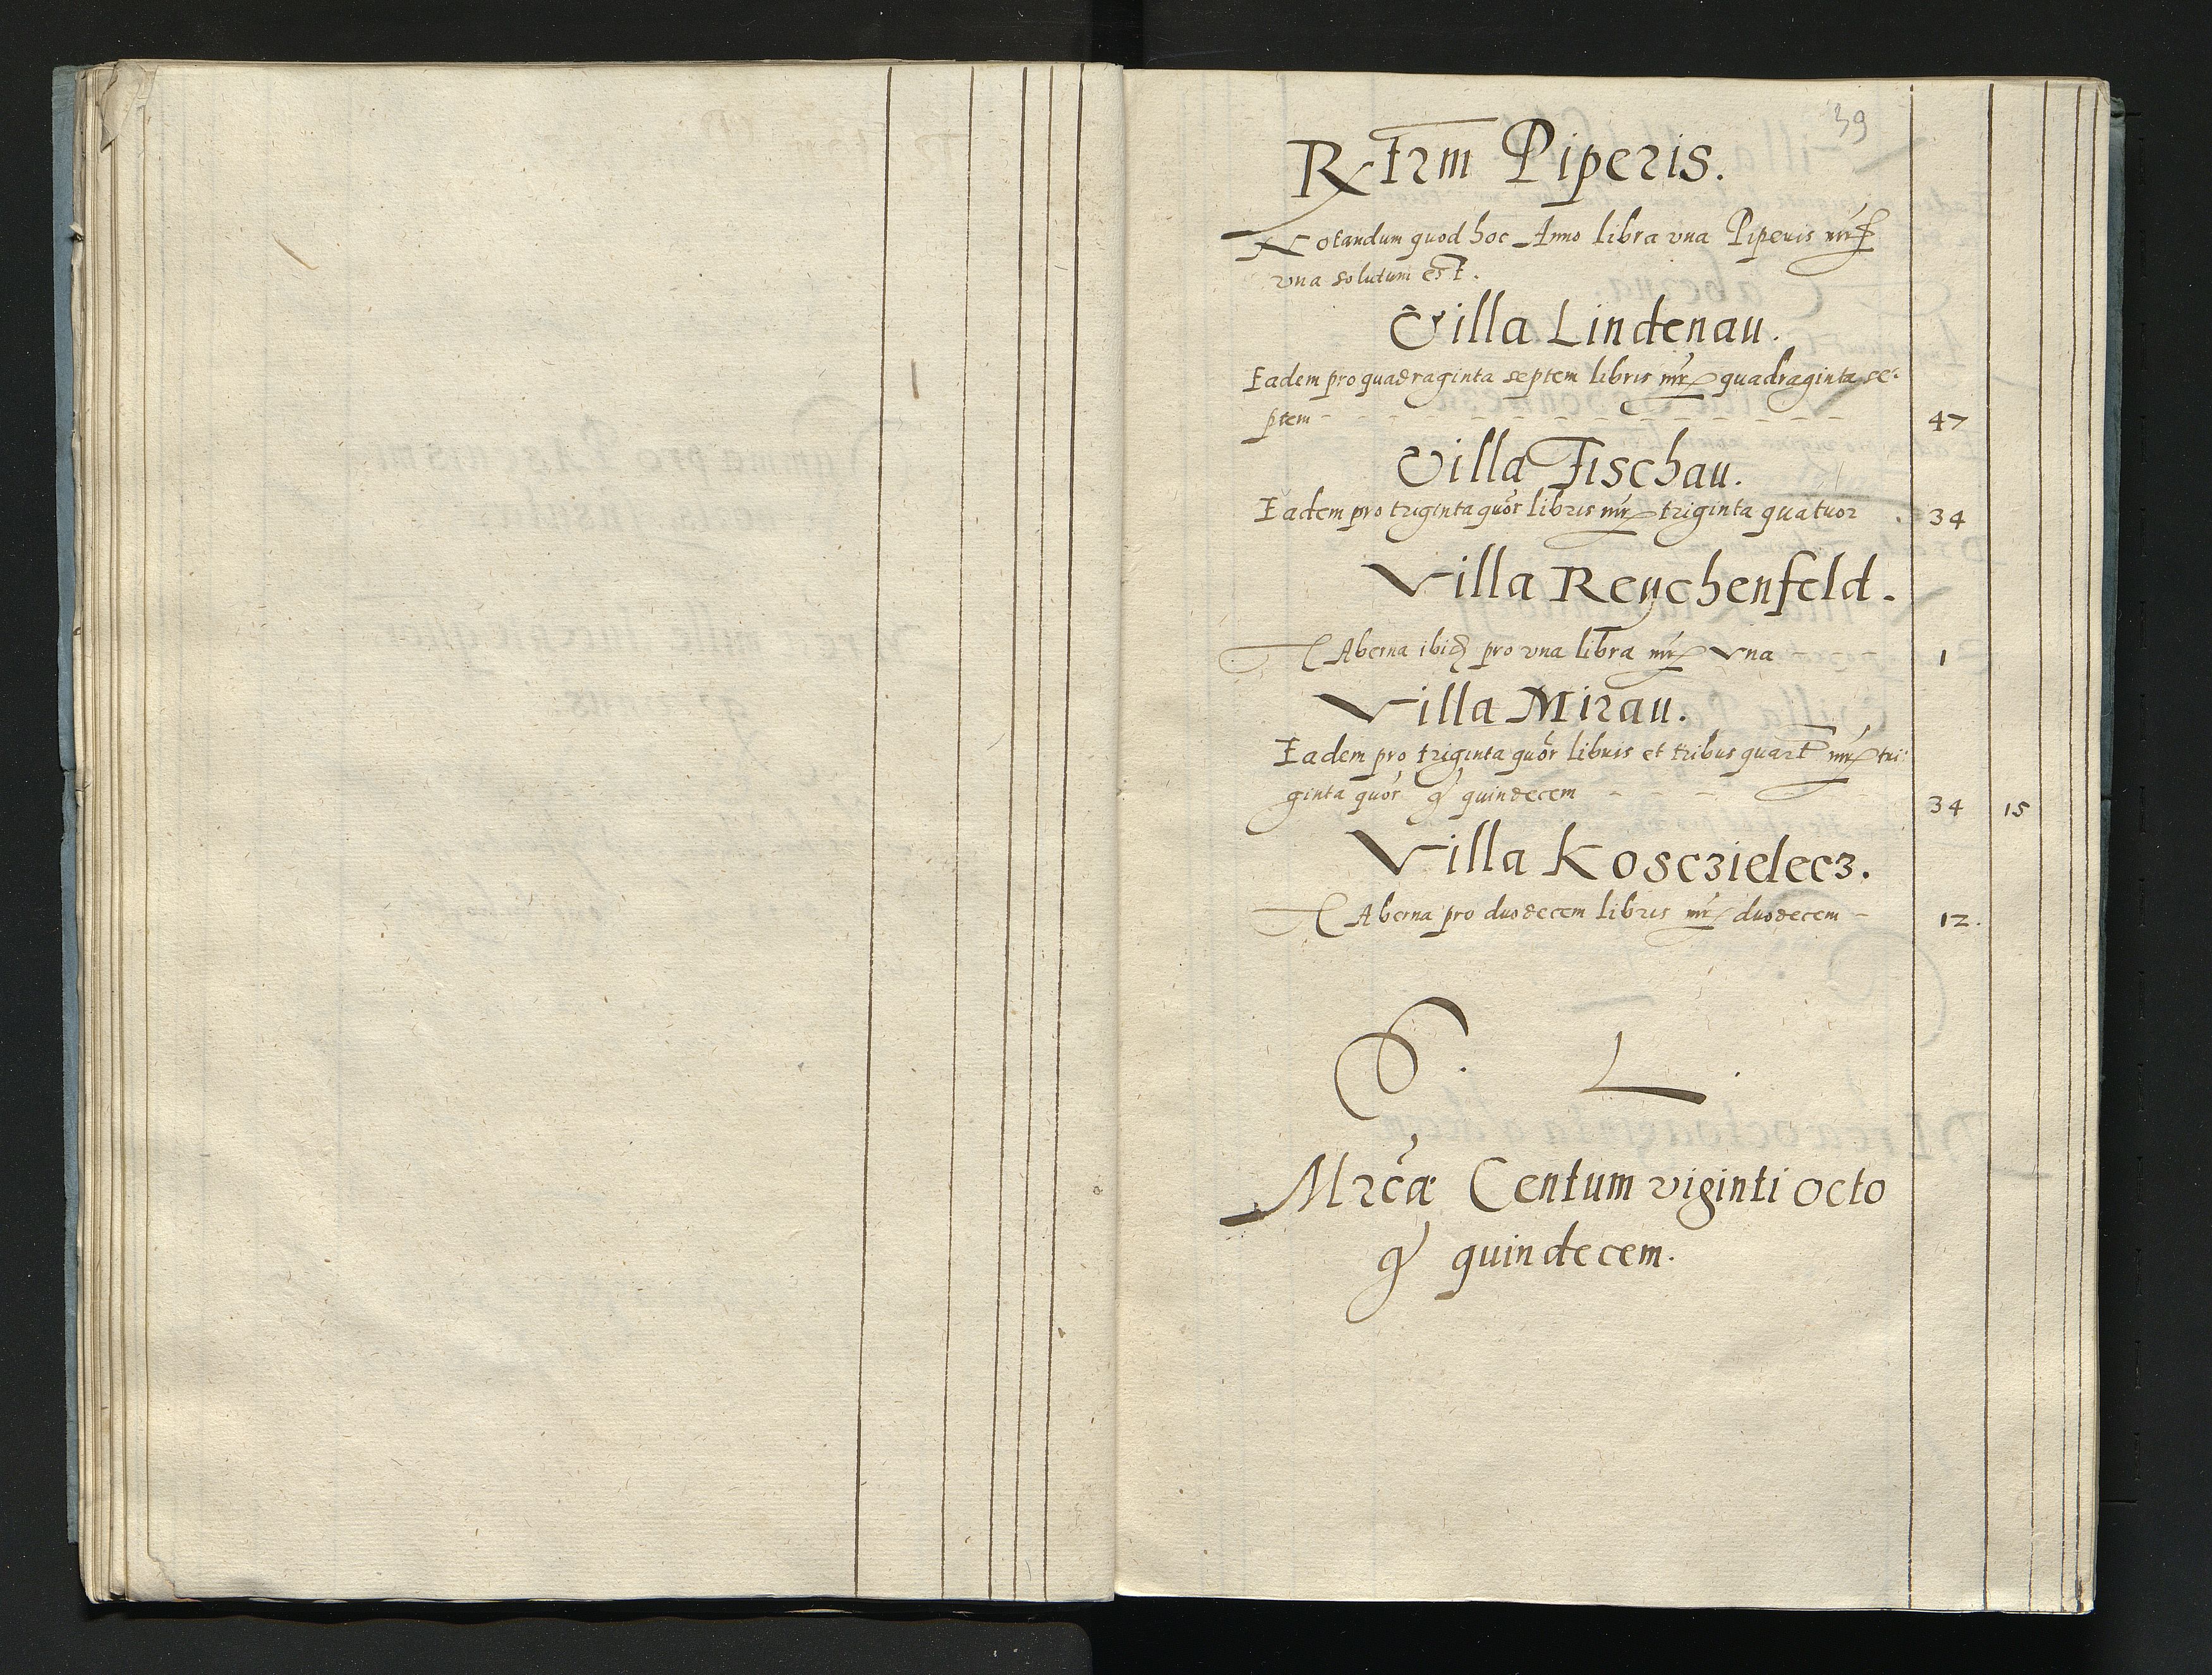 39
Rtrm Piperis.
Notandum quod hoc Anno libra vna Piperis mr̃
vna solutum est.
Villa Lindenau.
Eadem pro quadraginta septem libris mr̃ quadraginta se:
ptem 47
Villa Fischau.
Eadem pro triginta quor libris mr̃ triginta quatuor 34
Villa Reychenfeld.
TAberna ibid pro vna libra mr̃ Vna 1
Villa Mirau.
Eadem pro triginta quor libris et tribus quart mr̃ tri:
ginta quor g̃ quindecem 34 15
Villa Kosczielecz.
TAberna pro duodecem libris mr̃ duodecem 12.
S. L.
Mrca Centum viginti octo
g̃ quindecem.